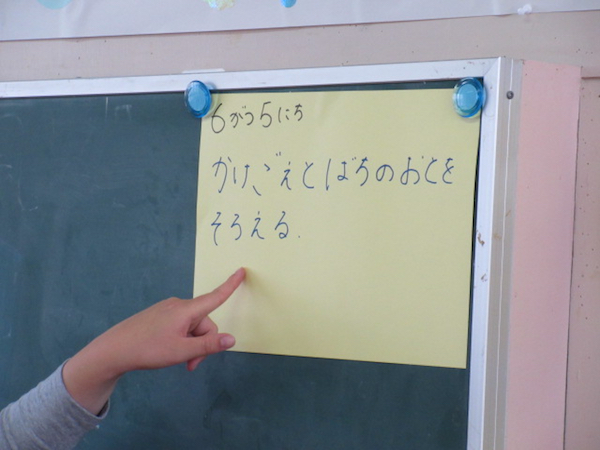 6がつ5にち
かけごえとばちのおとを
そろえる.